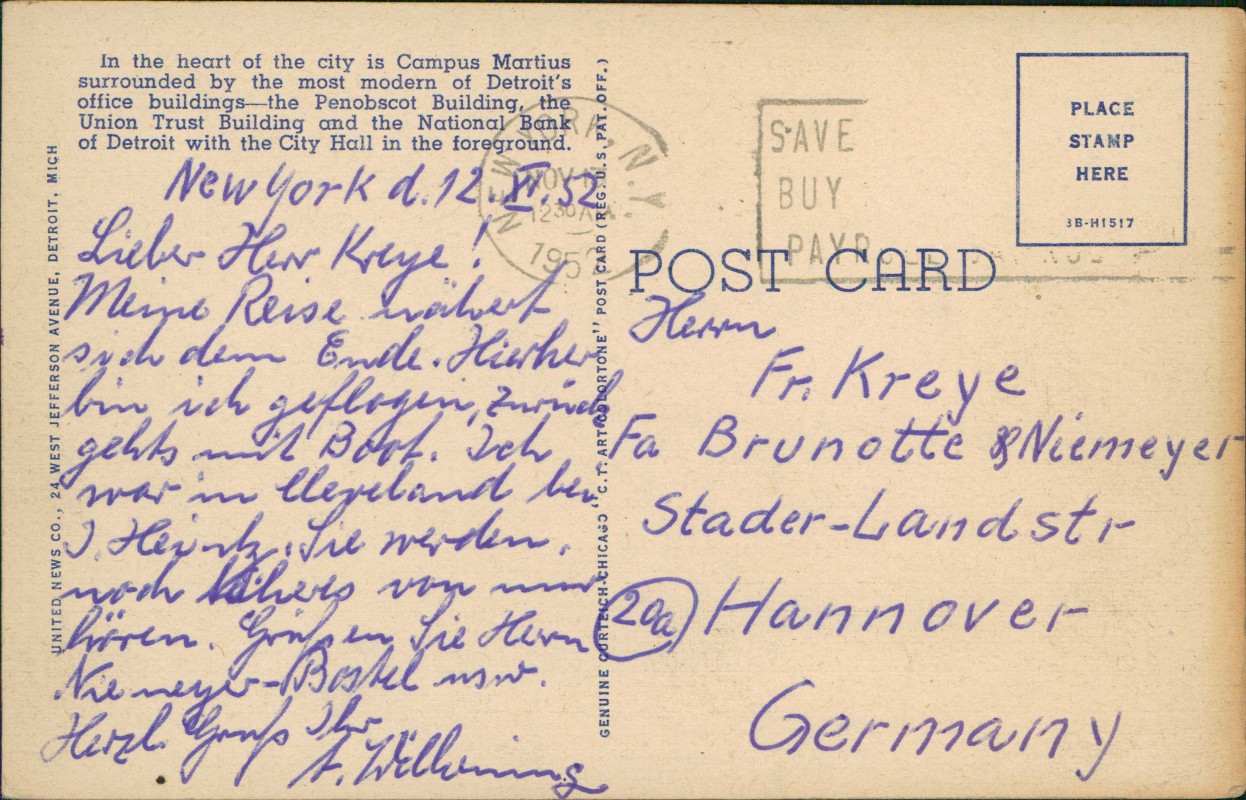 In the heart of the city is Campus Martius
surrounded by the most modern of Detroit's
office buildings—the Penobscot Building, the
Union Trust Building and the National Bank
of Detroit with the City Hall in the foreground.
UNITED NEWS CO., 24 WEST JEFFERSON AVENUE, DETROIT, MICH
New York d. 12. XI. 52
Lieber Herr Kreye!
Meine Reise nähert
sich dem Ende. Hierher
bin ich geflogen, zurück
gehts mit Boot. Ich
war in Cleveland bei
J. Heintz. Sie werden
noch Näheres von mir
hören. Grüßen Sie Herrn
Niemeyer-Bostel usw.
Herzl. Gruß Ihr
GENUINE CURTEICH-CHICAGO "C. T. ART-COLORTONE" POST CARD (REG. U. S. PAT. OFF.)
NEW YORK, N.Y.
NOV
12 30 AM
1952
SAVE
BUY
PLACE
STAMP
HERE
3B-H1517
POST CARD
Herrn
Fr. Kreye
Fa Brunotte & Niemeyer
Stader-Landstr
20a Hannover
Germany